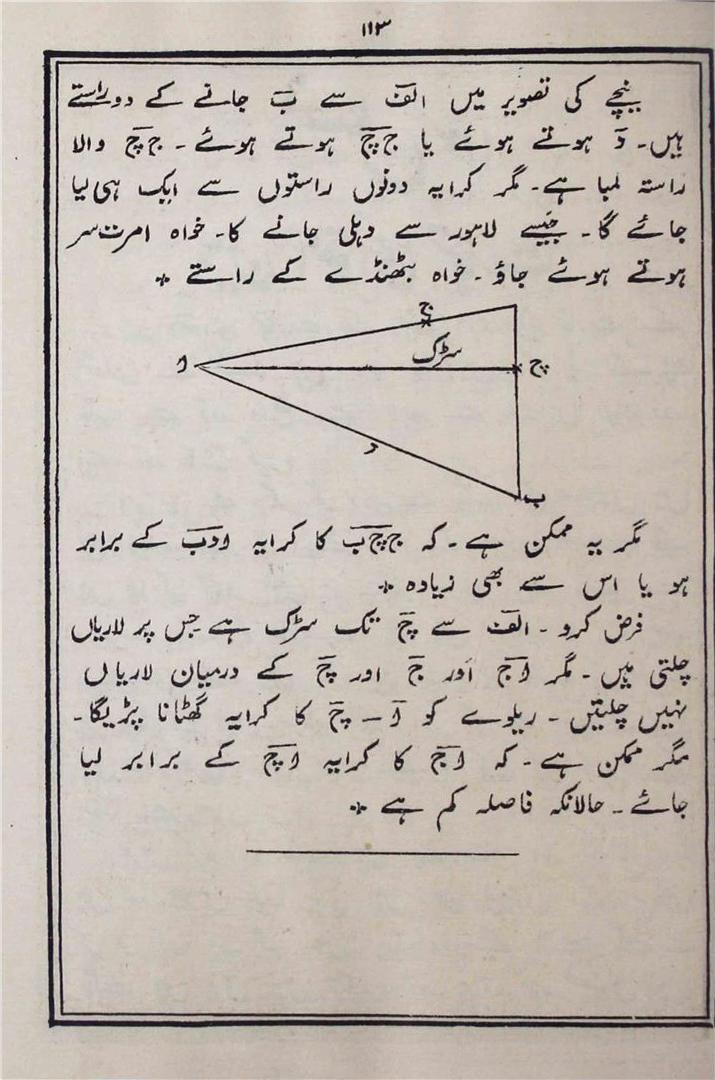 ۱۱۳
نیچے کی تصویر میں الف سے ب جانے کے دو راستے
ہیں۔ د ہوتے ہوئے یا ج چ ہوتے ہوئے۔ ج چ والا
راستہ لمبا ہے۔ مگر کرایہ دونوں راستوں سے ایک ہی لیا
جائے گا۔ جیسے لاہور سے دہلی جانے کا۔ خواہ امرت سر
ہوتے ہوئے جاؤ۔ خواہ بٹھنڈے کے راستے *
ج
سڑک
چ
ا
د
ب
مگر یہ ممکن ہے۔ کہ ج چ ب کا کرایہ ا د ب کے برابر
ہو یا اس سے بھی زیادہ *
فرض کرو۔ الف سے چ تک سڑک ہے جس پر لاریاں
چلتی ہیں۔ مگر ا ج اور ج اور چ کے درمیان لاریاں
نہیں چلتیں۔ ریلوے کو ا – چ کا کرایہ گھٹانا پڑیگا۔
مگر ممکن ہے۔ کہ ا ج کا کرایہ ا چ کے برابر لیا
جائے۔ حالانکہ فاصلہ کم ہے *